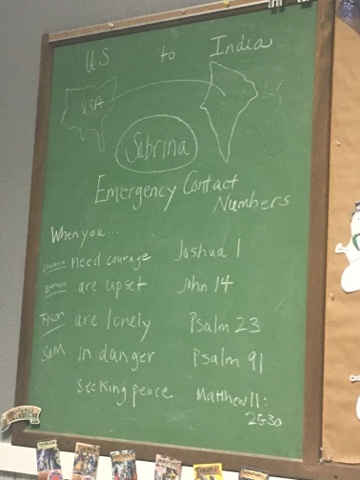 US to India
USA
Sabrina
Emergency Contact
Numbers
When you...
need courage Joshua 1
are upset John 14
Tyson are lonely Psalm 23
Sam in danger Psalm 91
Seeking peace Matthew 11:
28-30